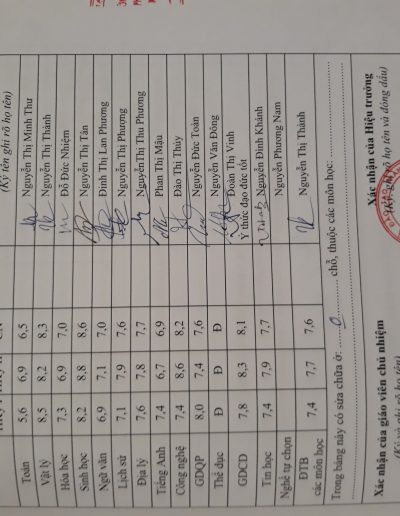 CN (Ký tên ghi rõ họ tên)
Toán 5,6 6,9 6,5 Nguyễn Thị Minh Thư
Vật lý 8,5 8,2 8,3 Nguyễn Thị Thành
Hóa học 7,3 6,9 7,0 Đỗ Đức Nhiệm
Sinh học 8,2 8,8 8,6 Nguyễn Thị Tân
Ngữ văn 6,9 7,1 7,0 Đinh Thị Lan Phương
Lịch sử 7,1 7,9 7,6 Nguyễn Thị Phượng
Địa lý 7,6 7,8 7,7 NguyễnThị Thu Phương
Tiếng Anh 7,4 6,7 6,9 Phan Thị Mậu
Công nghệ 7,4 8,6 8,2 Đào Thị Thúy
GDQP 8,0 7,4 7,6 Nguyễn Đức Toàn
Thể dục Đ Đ Đ Nguyễn Văn Đông
GDCD 7,8 8,3 8,1 Đoàn Thị Vinh
Ý thức đạo đức tốt
Tin học 7,4 7,9 7,7 Nguyễn Đình Khánh
Nghề tự chọn Nguyễn Phương Nam
ĐTB 7,4 7,7 7,6 Nguyễn Thị Thành
các môn học
Trong bảng này có sửa chữa ở: ....0.... chỗ, thuộc các môn học:
Xác nhận của giáo viên chủ nhiệm Xác nhận của Hiệu trưởng
(Ký và ghi rõ họ tên) (Ký, ghi rõ họ tên và đóng dấu)